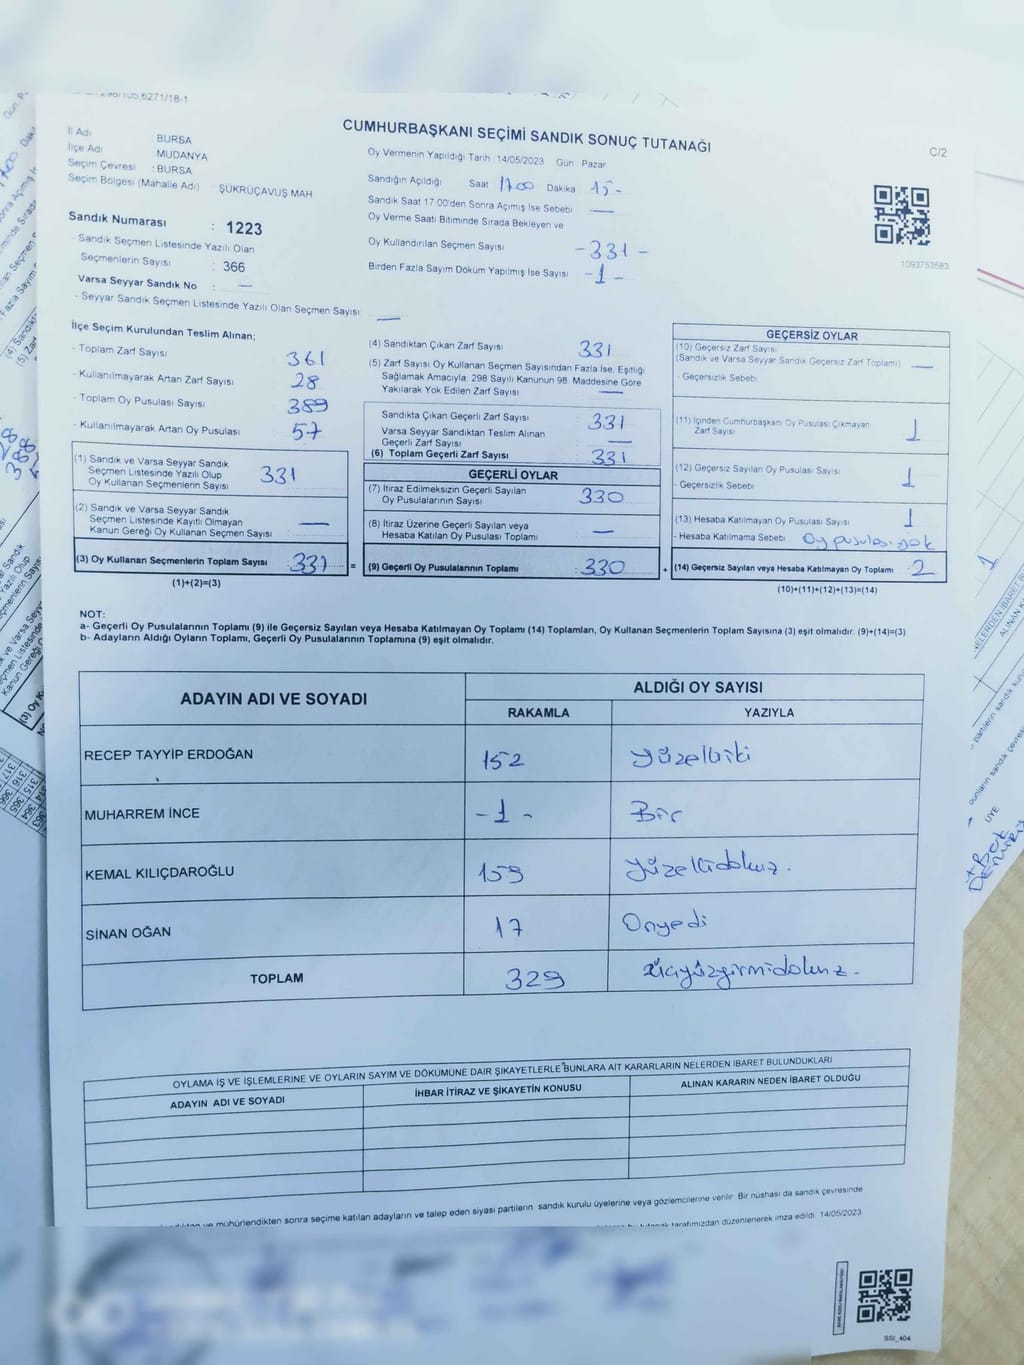 CUMHURBAŞKANI SEÇİMİ SANDIK SONUÇ TUTANAĞI
C/2
İl Adı BURSA
İlçe Adı MUDANYA
Seçim Çevresi : BURSA
Seçim Bölgesi (Mahalle Adı) : ŞÜKRÜÇAVUŞ MAH
Oy Vermenin Yapıldığı Tarih :14/05/2023 Gün Pazar
Sandığın Açıldığı Saat 17.00 Dakika 15-
Sandık Saat 17:00'den Sonra Açımış İse Sebebi —
Oy Verme Saati Bitiminde Sırada Bekleyen ve
Oy Kullandırılan Seçmen Sayısı -331-
Birden Fazla Sayım Döküm Yapılmış İse Sayısı -1-
1093753583
Sandık Numarası : 1223
- Sandık Seçmen Listesinde Yazılı Olan
Seçmenlerin Sayısı : 366
Varsa Seyyar Sandık No : —
- Seyyar Sandık Seçmen Listesinde Yazılı Olan Seçmen Sayısı —
İlçe Seçim Kurulundan Teslim Alınan;
- Toplam Zarf Sayısı 361
- Kullanılmayarak Artan Zarf Sayısı 28
- Toplam Oy Pusulası Sayısı 389
- Kullanılmayarak Artan Oy Pusulası 57
(1) Sandık ve Varsa Seyyar Sandık
Seçmen Listesinde Yazılı Olup
Oy Kullanan Seçmenlerin Sayısı 331
(2) Sandık ve Varsa Seyyar Sandık
Seçmen Listesinde Kayıtlı Olmayan
Kanun Gereği Oy Kullanan Seçmen Sayısı —
(3) Oy Kullanan Seçmenlerin Toplam Sayısı 331 =
(1)+(2)=(3)
(4) Sandıktan Çıkan Zarf Sayısı 331
(5) Zarf Sayısı Oy Kullanan Seçmen Sayısından Fazla İse, Eşitliği
Sağlamak Amacıyla, 298 Sayılı Kanunun 98. Maddesine Göre
Yakılarak Yok Edilen Zarf Sayısı —
Sandıkta Çıkan Geçerli Zarf Sayısı 331
Varsa Seyyar Sandıktan Teslim Alınan
Geçerli Zarf Sayısı —
(6) Toplam Geçerli Zarf Sayısı 331
GEÇERLİ OYLAR
(7) İtiraz Edilmeksizin Geçerli Sayılan
Oy Pusulalarının Sayısı 330
(8) İtiraz Üzerine Geçerli Sayılan veya
Hesaba Katılan Oy Pusulası Toplamı —
(9) Geçerli Oy Pusulalarının Toplamı 330 +
GEÇERSİZ OYLAR
(10) Geçersiz Zarf Sayısı
(Sandık ve Varsa Seyyar Sandık Geçersiz Zarf Toplamı) —
- Geçersizlik Sebebi
(11) İçinden Cumhurbaşkanı Oy Pusulası Çıkmayan
Zarf Sayısı 1
(12) Geçersiz Sayılan Oy Pusulası Sayısı 1
- Geçersizlik Sebebi
(13) Hesaba Katılmayan Oy Pusulası Sayısı 1
- Hesaba Katılmama Sebebi Oy pusulası yok
(14) Geçersiz Sayılan veya Hesaba Katılmayan Oy Toplamı 2
(10)+(11)+(12)+(13)=(14)
NOT:
a- Geçerli Oy Pusulalarının Toplamı (9) ile Geçersiz Sayılan veya Hesaba Katılmayan Oy Toplamı (14) Toplamları, Oy Kullanan Seçmenlerin Toplam Sayısına (3) eşit olmalıdır. (9)+(14)=(3)
b- Adayların Aldığı Oyların Toplamı, Geçerli Oy Pusulalarının Toplamına (9) eşit olmalıdır.
ADAYIN ADI VE SOYADI ALDIĞI OY SAYISI
RAKAMLA YAZIYLA
RECEP TAYYİP ERDOĞAN 152 yüzelliiki
MUHARREM İNCE -1- Bir
KEMAL KILIÇDAROĞLU 159 yüzellidokuz.
SİNAN OĞAN 17 Onyedi
TOPLAM 329 üçyüzyirmidokuz.
OYLAMA İŞ VE İŞLEMLERİNE VE OYLARIN SAYIM VE DÖKÜMÜNE DAİR ŞİKAYETLERLE BUNLARA AİT KARARLARIN NELERDEN İBARET BULUNDUKLARI
ADAYIN ADI VE SOYADI İHBAR İTİRAZ VE ŞİKAYETİN KONUSU ALINAN KARARIN NEDEN İBARET OLDUĞU
mühürlendikten sonra seçime katılan adayların ve talep eden siyasi partilerin sandık kurulu üyelerine veya gözlemcilerine verilir. Bir nüshası da sandık çevresinde
tarafımızdan düzenlenerek imza edildi. 14/05/2023
SSI_404